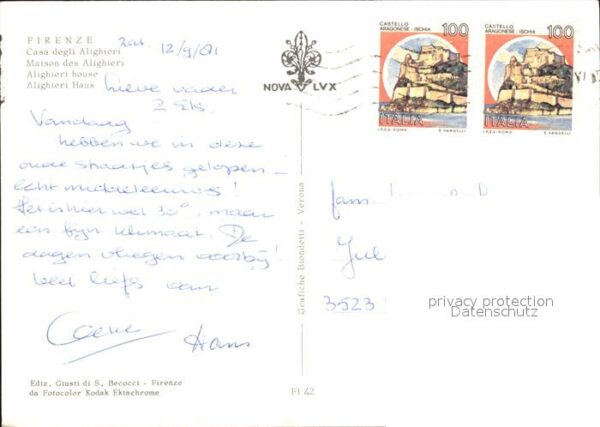 FIRENZE
Casa degli Alighieri
Maison des Alighieri
Alighieri house
Alighieri Haus
Zat. 12/9/81
lieve vader
Vandaag
hebben we in deze
oude straatjes gelopen -
echt middeleeuws!
Het is hier wel 30°, maar
een fijn klimaat. De
dagen vliegen voorbij!
veel liefs van
Hans
Ediz. Giusti di S. Becocci - Firenze
da Fotocolor Kodak Ektachrome
NOVA LVX
Grafiche Biondetti - Verona
FI 42
CASTELLO
ARAGONESE - ISCHIA 100
ITALIA
I.P.Z.S. - ROMA E. VANGELLI
CASTELLO
ARAGONESE - ISCHIA 100
ITALIA
I.P.Z.S. - ROMA E. VANGELLI
Fam.
Jul
3523
privacy protection
Datenschutz